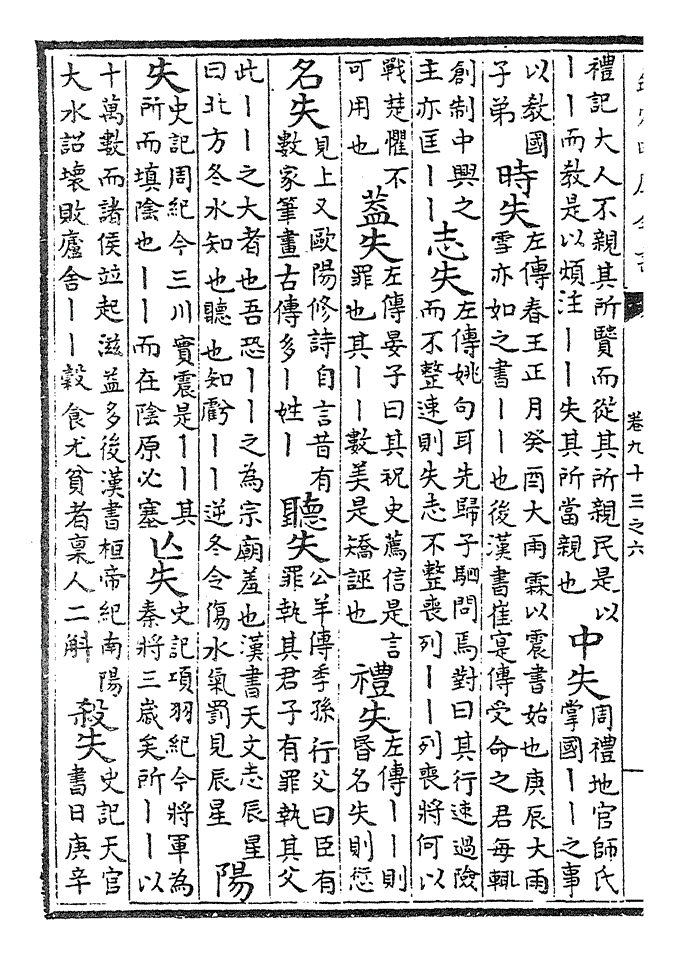 卷九十三之六
禮記大人不親其所賢而從其所親民是以
丨丨而教是以煩注丨丨失其所當親也
中失
周禮地官師氏
掌國丨丨之事
以教國
子弟
時失
左傳春王正月癸酉大雨霖以震書始也庚辰大雨
雪亦如之書丨丨也後漢書崔寔傳受命之君每輒
創制中興之
主亦匡丨丨
志失
左傳姚句耳先歸子駟問焉對曰其行速過險
而不整速則失志不整喪列丨丨列喪將何以
戰楚懼不
可用也
蓋失
左傳晏子曰其祝史薦信是言
罪也其丨丨數美是矯誣也
禮失
左傳丨丨則
昏名失則愆
名失
見上又歐陽修詩自言昔有
數家筆畫古傳多丨姓丨
聽失
公羊傳季孫行父曰臣有
罪執其君子有罪執其父
此丨丨之大者也吾恐丨丨之為宗廟羞也漢書天文志辰星
曰北方冬水知也聽也知虧丨丨逆冬令傷水氣罰見辰星
陽
失
史記周紀今三川實震是丨丨其
所而填陰也丨丨而在陰原必塞
亾失
史記項羽紀今將軍為
秦將三歲矣所丨丨以
十萬數而諸侯竝起滋益多後漢書桓帝紀南陽
大水詔壞敗廬舍丨丨穀食尤貧者稟人二斛
殺失
史記天官
書日庚辛